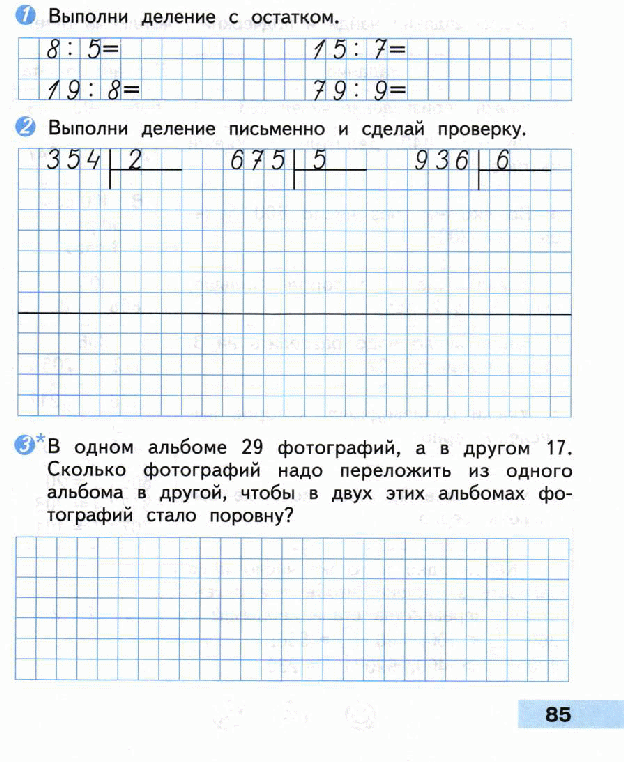 1 Выполни деление с остатком.
8 : 5= 15 : 7=
19 : 8= 79 : 9=
2 Выполни деление письменно и сделай проверку.
354 2 675 5 936 6
3* В одном альбоме 29 фотографий, а в другом 17.
Сколько фотографий надо переложить из одного
альбома в другой, чтобы в двух этих альбомах фо-
тографий стало поровну?
85